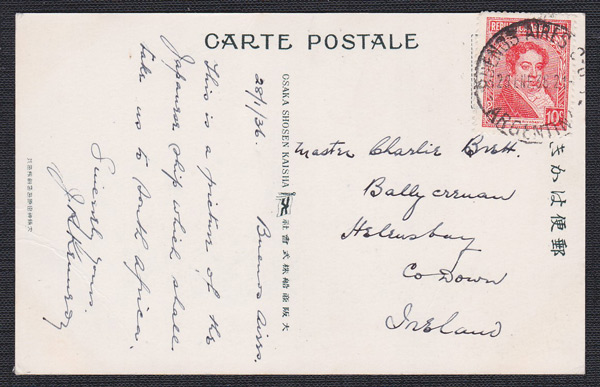 CARTE POSTALE
28/1/36. Buenos Aires.
This is a picture of the
Japanese ship which shall
take us to South Africa.
Sincerely yours.
OSAKA SHOSEN KAISHA
大阪商船株式會社
REPUBLICA
10c
BUENOS AIRES
ARGENTINA
Master Charlie Brett.
Ballycrenan
Helensbay
Co Down
Ireland
郵便はかき